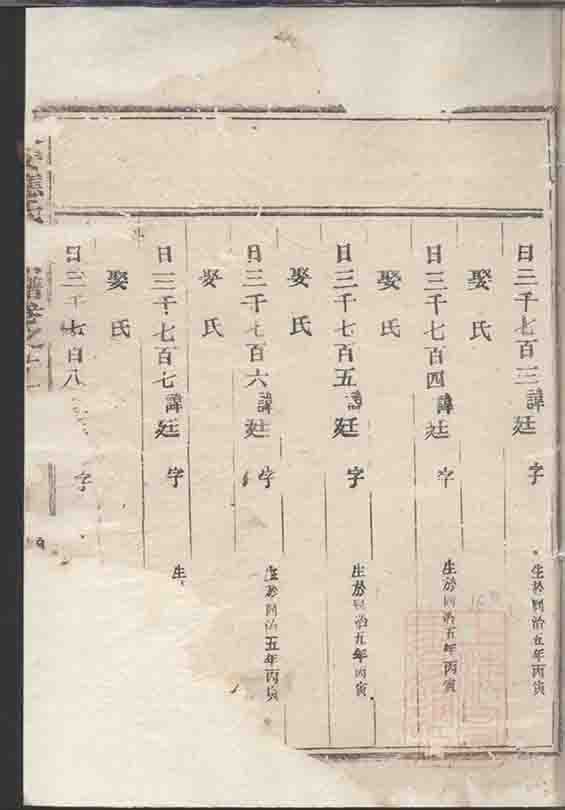 日三千七百三 諱廷 字 生於同治五年丙寅
娶氏
日三千七百四 諱廷 字 生於同治五年丙寅
娶氏
日三千七百五 諱廷 字 生於同治五年丙寅
娶氏
日三千七百六 諱廷 字 生於同治五年丙寅
娶氏
日三千七百七 諱廷 字 生
娶氏
日三千七百八 字
氏 譜卷之